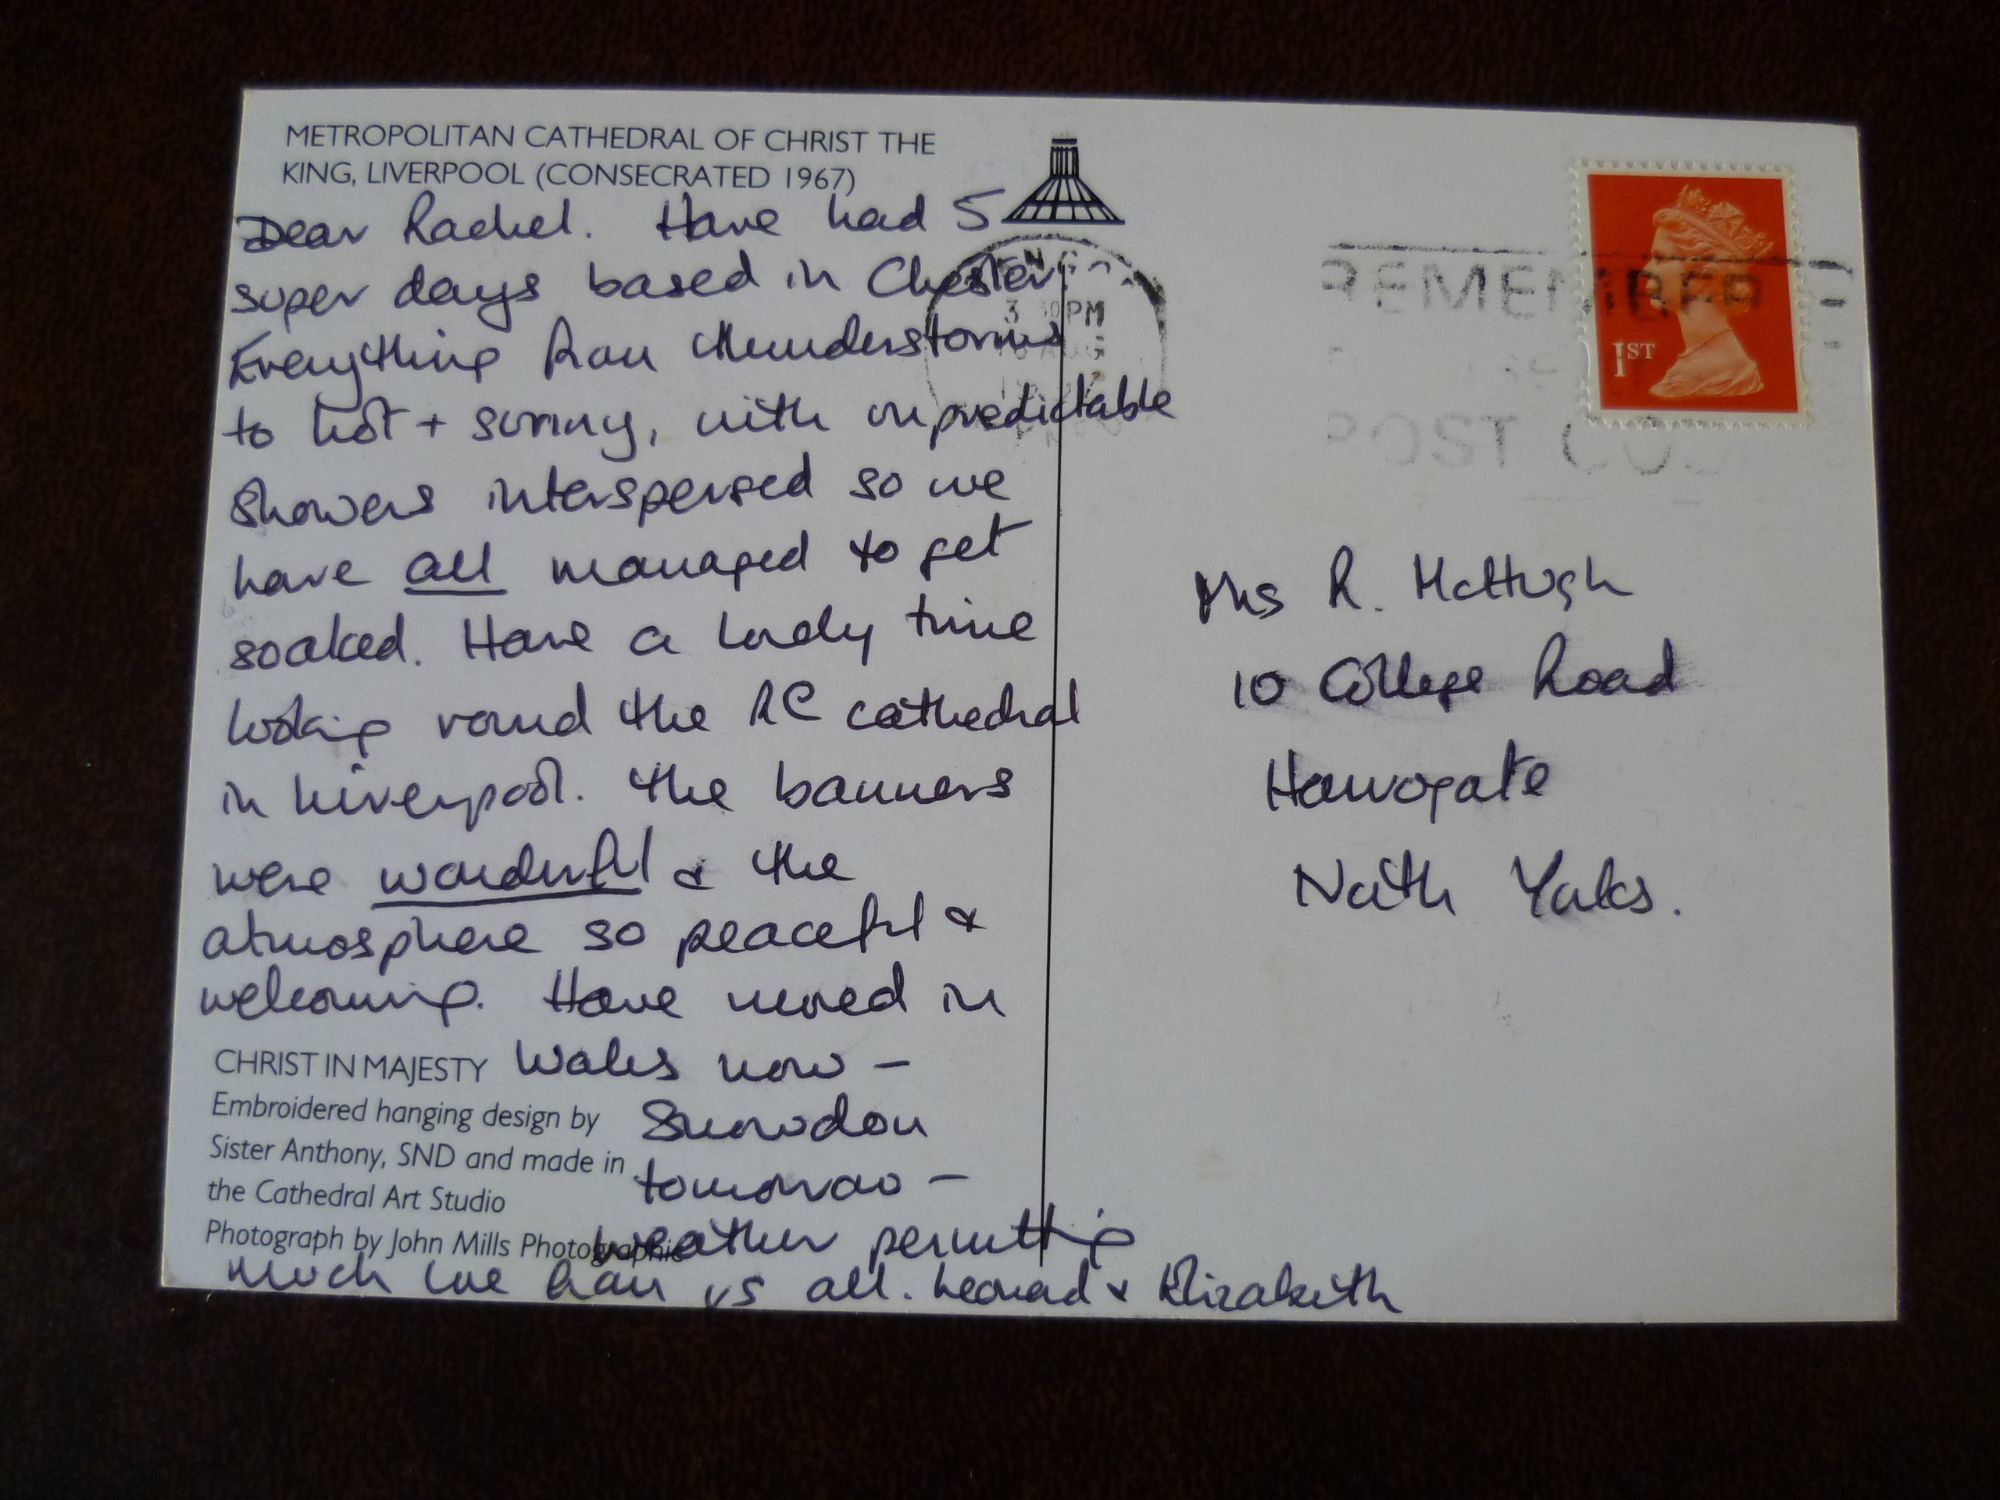 METROPOLITAN CATHEDRAL OF CHRIST THE
KING, LIVERPOOL (CONSECRATED 1967)
Dear Rachel. Have had 5
super days based in Chester
Everything from thunderstorms
to hot + sunny, with unpredictable
showers interspersed so we
have all managed to get
soaked. Have a lovely time
looking round the RC cathedral
in Liverpool. The banners
were wonderful & the
atmosphere so peaceful &
welcoming. Have moved in
Wales now -
Snowdon
tomorrow -
weather permitting
Much love from us all. Leonard & Elizabeth
CHRIST IN MAJESTY
Embroidered hanging design by
Sister Anthony, SND and made in
the Cathedral Art Studio
Photograph by John Mills Photographic
3 30PM
AUG
REMEMBER
POST COD
1ST
Mrs R. McHugh
10 College Road
Harrogate
North Yorks.